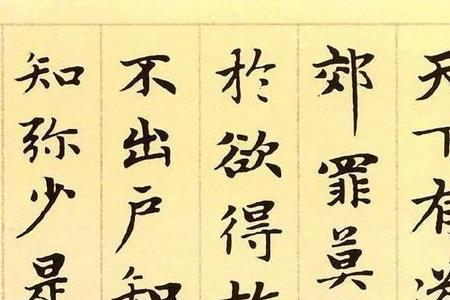 天下有
郊罪莫
於欲得故
不出户知
知弥少是